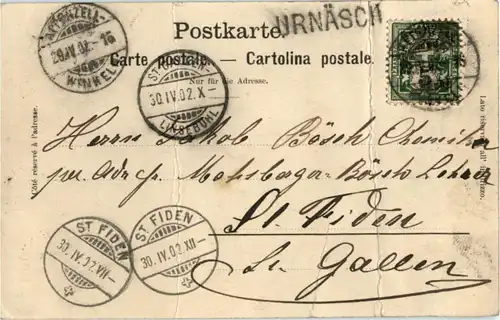 Postkarte.
URNÄSCH
Carte postale. - Cartolina postale.
Nur für die Adresse.
APPENZELL-
29.IV.02.-16
WINKEL
ST. GALLEN-
30.IV.02.X-
LINSEBÜHL
Côté réservé à l'adresse.
Lato riservato all'indirizzo.
Herrn Jakob Bösch Chemiker
per Adr. Mohsberger-Bösch Lehrer
St. Fiden
St. Gallen
ST FIDEN
30.IV.02.VII-
ST FIDEN
30.IV.02.XII-